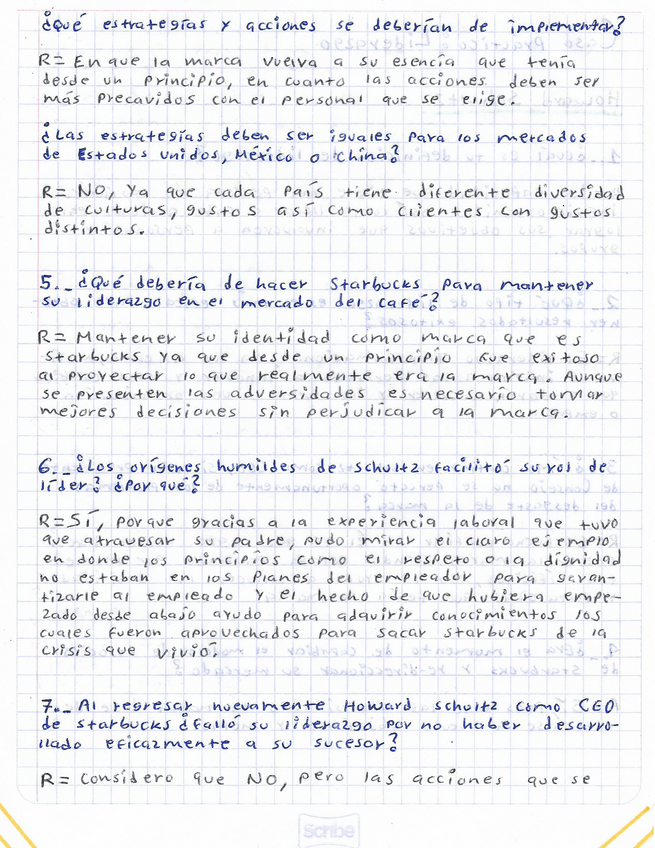 ¿Qué estrategías y acciones se deberían de implementar?
R= En que la marca vuelva a su esencía que tenía
desde un principio, en cuanto las acciones deben ser
más precavidos con el personal que se elige.
¿Las estrategías deben ser iguales para los mercados
de Estados unidos, México o China?
R= NO, Ya que cada País tiene diferente diversidad
de culturas, gustos así como clientes con gustos
distintos.
5._ ¿Qué debería de hacer Starbucks para mantener
su liderazgo en el mercado del café?
R= Mantener su identidad como marca que es
Starbucks ya que desde un principio fue exitoso
al proyectar lo que realmente era la marca. Aunque
se presenten las adversidades es necesario tomar
mejores decisiones sin perjudicar a la marca.
6._ ¿Los orígenes humildes de schultz facilitó su rol de
líder? ¿Por qué?
R= Sí, porque gracias a la experiencia laboral que tuvo
que atravesar su padre, pudo mirar el claro ejemplo
en donde los principios como el respeto o la dignidad
no estaban en los planes del empleador para garan-
tizarle al empleado y el hecho de que hubiera empe-
zado desde abajo ayudo para adquirir conocimientos los
cuales fueron aprovechados para sacar starbucks de la
crisis que vivió.
7._ Al regresar nuevamente Howard schultz como CEO
de starbucks ¿Falló su liderazgo por no haber desarro-
llado eficazmente a su sucesor?
R= Considero que NO, pero las acciones que se
Scribe